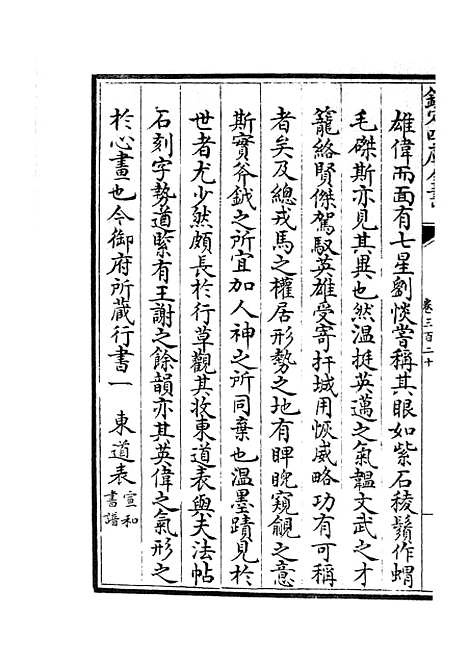 欽定四庫全書
卷三百二十
雄偉而面有七星劉惔嘗稱其眼如紫石稜鬚作蝟
毛磔斯亦見其異也然溫挺英邁之氣韞文武之才
籠絡賢傑駕馭英雄受寄扞城用恢威略功有可稱
者矣及總戎馬之權居形勢之地有睥睨窺覦之意
斯實斧鉞之所宜加人神之所同棄也溫墨蹟見於
世者尤少然頗長於行草觀其收東道表與夫法帖
石刻字勢遒緊有王謝之餘韻亦其英偉之氣形之
於心畫也今御府所藏行書一 東道表宣和書譜